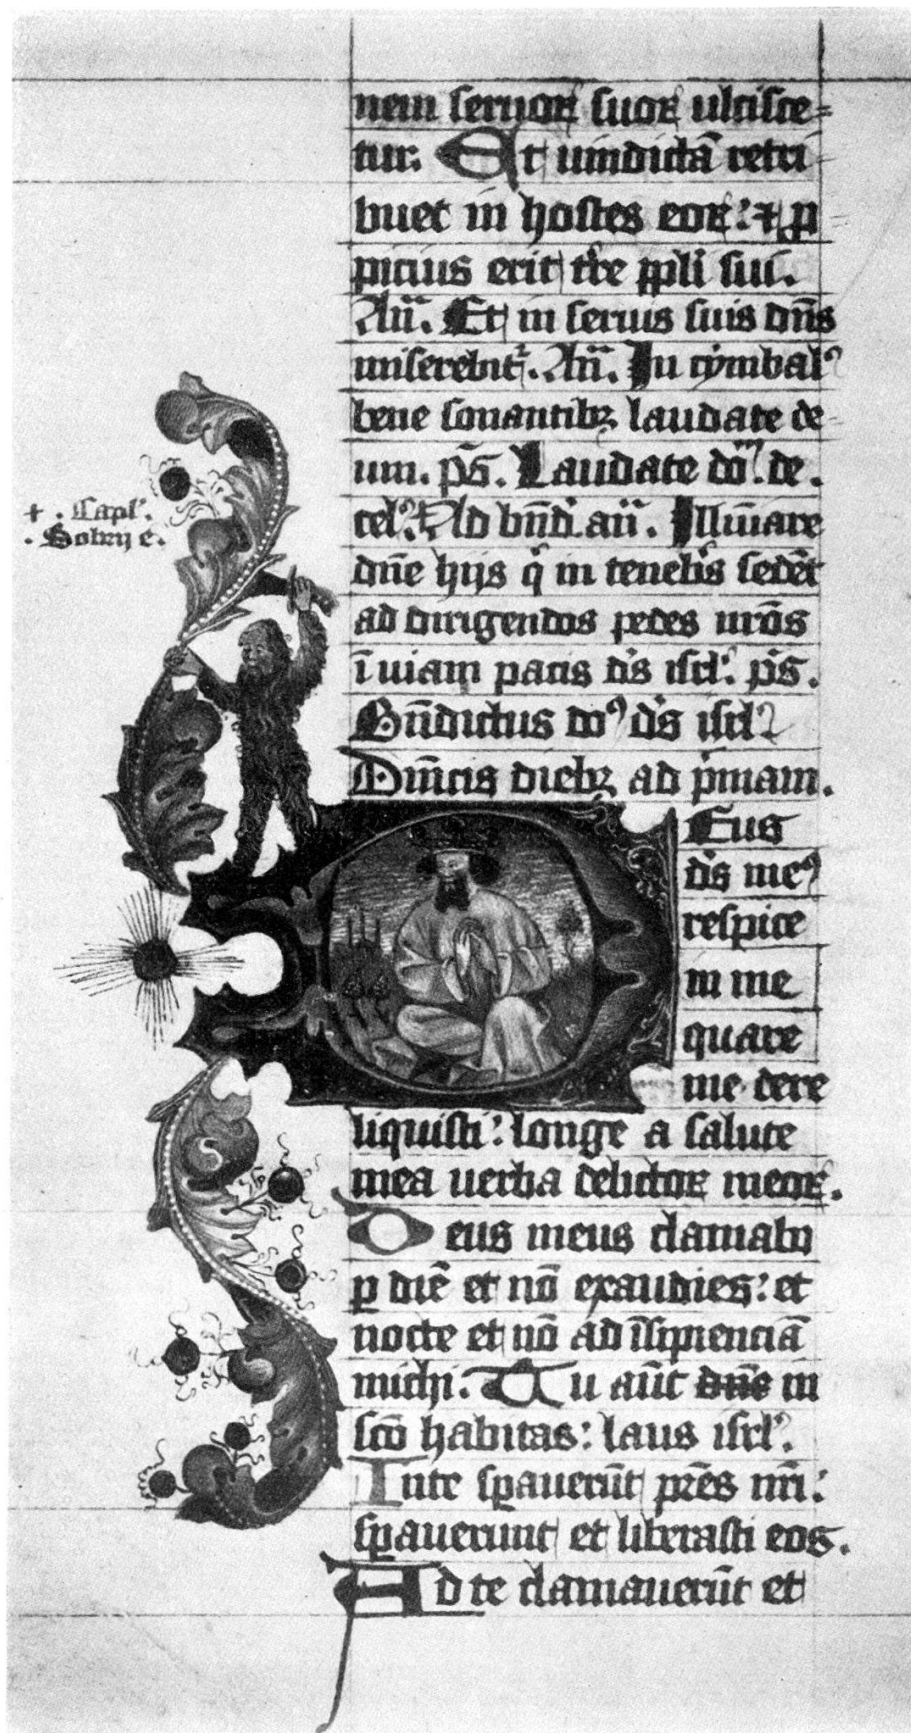 nem seruoꝝ suoꝝ ulcisce=
tur. Et uindictā retri-
buet in hostes eoꝝ: ⁊ ꝓ=
picius erit tr̄e ppli sui.
Añ. Et in seruis suis dn̄s
miserebit᷑. Añ. In cymbalꝰ
bene sonantibꝫ laudate de-
um. p̄s. Laudate dōm. de.
celꝰ. + Ad bn̄d. an̄. Illūinare
dn̄e hijs q̇ in teneb̾s sedēt
ad dirigendos pedes nr̄os
ī uiam pacis dꝰs isrl. p̄s.
Bn̄dictus doꝰ dꝰs isrlꝰ
Dn̄icis diebꝫ ad p̾mam.
+. Capl.
. Sobrij e.
Eus
dꝰs meꝰ
respice
in me
quare
me dere
liquisti: longe a salute
mea uerba delictoꝝ meoꝝ.
Deus meus clamabo
ꝑ diē et nō exaudies: et
nocte et nō ad īsipienciā
michi. Tu aūt dn̄e in
scō habitas: laus isrl.
In te sꝑauerūt pr̄es nr̄i:
sꝑauerunt et liberasti eos.
Ad te clamauerūt et